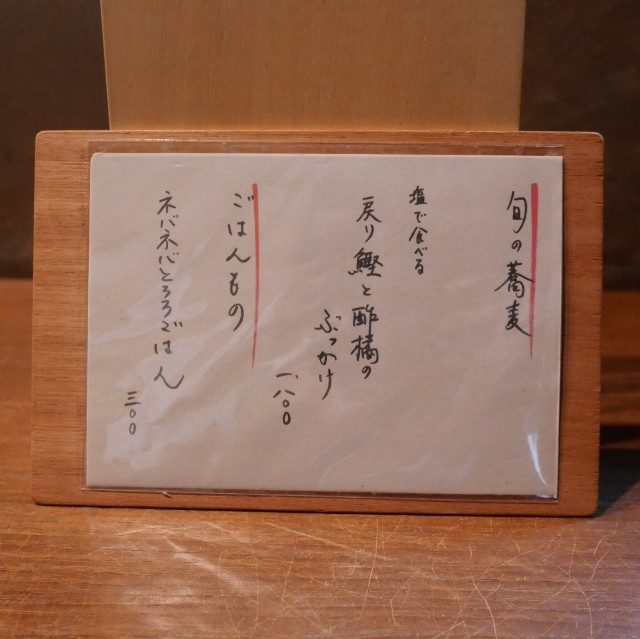 旬の蕎麦
塩で食べる
戻り鰹と酢橘の
ぶっかけ
一、八〇〇
ごはんもの
ネバネバとろろごはん
三〇〇